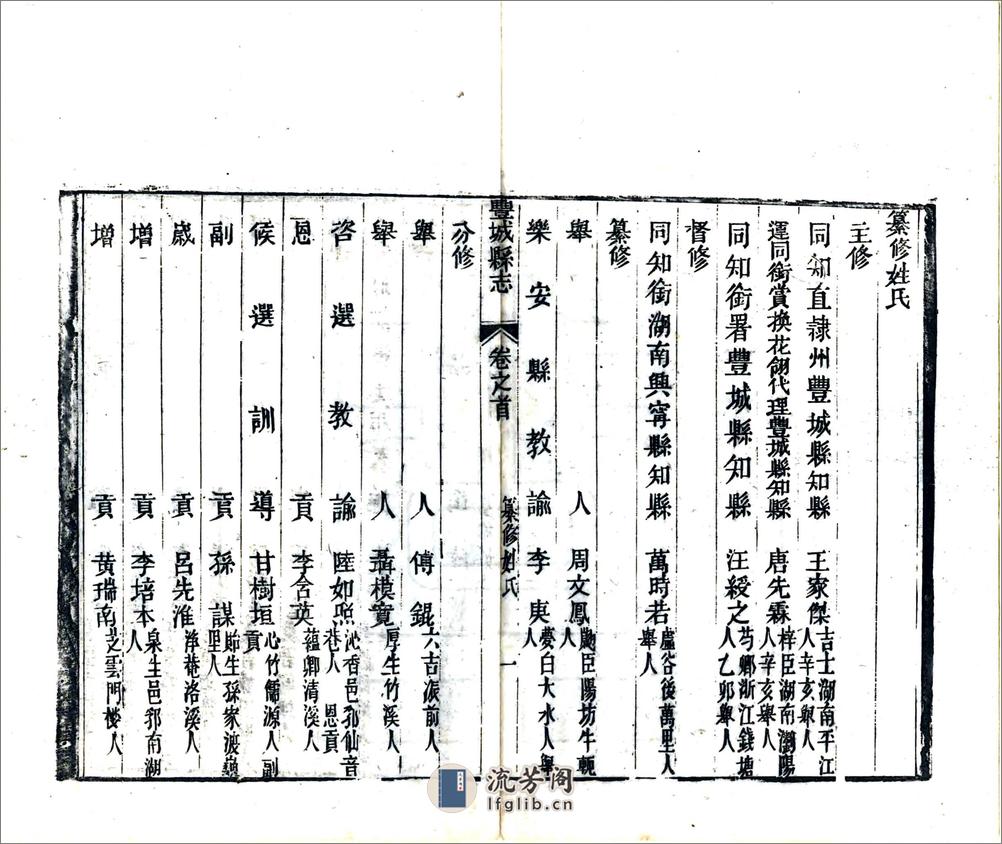 纂修姓氏
主修
同知直隸州豐城縣知縣 王家傑 吉士湖南平江人辛亥舉人
運同銜賞換花翎代理豐城縣知縣 唐先霖 梓臣湖南瀏陽人辛亥舉人
同知銜署豐城縣知縣 汪綬之 芍卿浙江錢塘人乙卯舉人
督修
同知銜湖南興寧縣知縣 萬時若 盧谷後萬里人舉人
纂修
舉人 周文鳳 陽坊牛軛人
樂安縣教諭 李庚 夢白大水人舉人
豐城縣志 卷之首 纂修姓氏 一
分修
舉人 傅錕 六吉派前人
舉人 聶模寬 厚生竹溪人
咨選教諭 陸如熙 沁香邑邻仙音巷人恩貢
恩貢 李含英 蘊卿清溪人
候選訓導 甘樹垣 心竹儒源人副貢
副貢 孫謀 孫家渡里人
歲貢 呂先淮 淨菴洛溪人
增貢 李培本 泉生邑邻南湖人
增貢 黃瑞南 芝雲門楼人
流芳阁
lfglib.cn